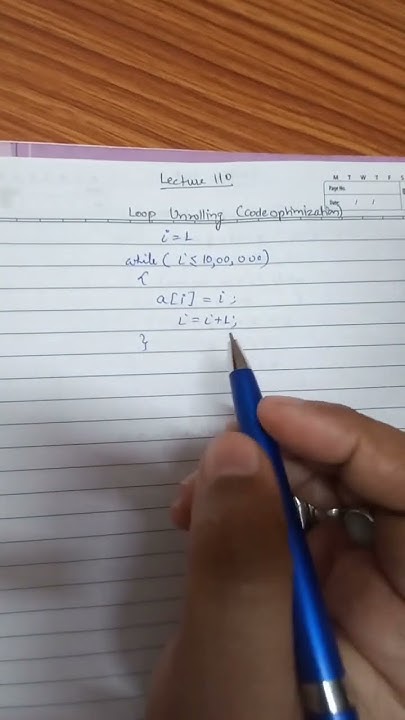 Lecture 110
M T W T F S
Page No.
Date / /
Loop Unrolling (code optimization)
i = 1
while ( i ≤ 10,00,000)
{
a[i] = i ;
i = i+1;
}